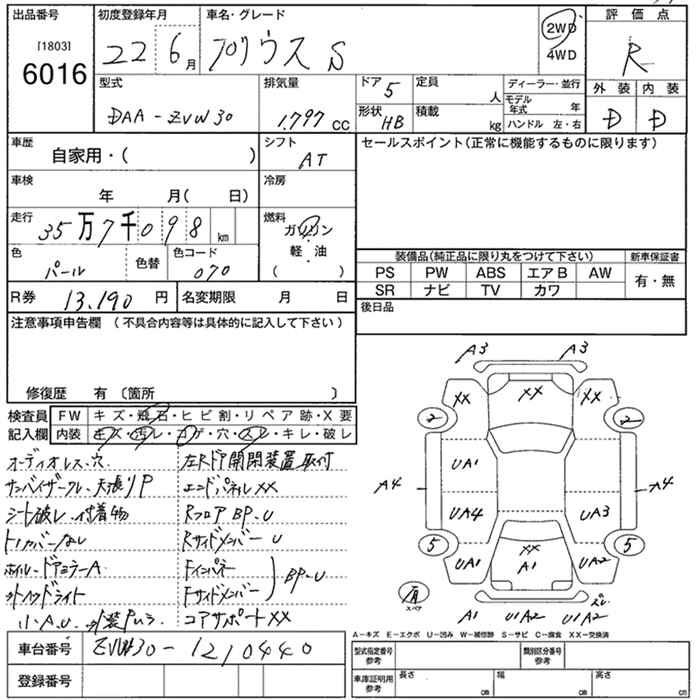 出品番号 初度登録年月 車名・グレード 評価点
[1803]
6016
22年 6月 プリウス S 2WD
4WD R
型式 排気量 ドア 5 定員 人 ディーラー・並行 外装 内装
DAA-ZVW30 1,797 cc 形状 HB 積載 kg モデル年式 年 D D
ハンドル 左・右
車歴 シフト セールスポイント(正常に機能するものに限ります)
自家用・( ) AT
車検 冷房
年 月( 日)
走行 燃料
35万7千098 km ガソリン
色 色替 色コード 軽・油
パール 070 ( )
装備品(純正品に限り丸をつけて下さい) 新車保証書
PS PW ABS エアB AW 有・無
SR ナビ TV カワ
R券 13,190 円 名変期限 月 日 後日品
注意事項申告欄 (不具合内容等は具体的に記入して下さい)
修復歴 有 〔箇所 〕
検査員 FW キズ・飛石・ヒビ割・リペア跡・X要
記入欄 内装 キズ・汚レ・コゲ・穴・スレ・キレ・破レ
オーディオレス、穴 左Rドア開閉装置取付
サンバイザークレ、天張りP エンドパネルXX
シート破レ、付着物 RフロアBP、U
トノカバーなし RサイドメンバーU
ホイル・ドアミラーA Fインパネ
ヘッドライト Fサイドメンバー BP、U
小A、U、外装 コアサポートXX
A3 A3
XX XX XX
2 2
UA1
A4 A4
UA4 UA3
5 5
UA1 XX UA2
A1
有
スペア
A1 U1A2 U1A2
A-キズ E-エクボ U-凹み W-補修跡 S-サビ C-腐食 XX-交換済
車台番号 ZVW30-1210440
型式指定番号 参考 類別区分番号 参考
登録番号
車庫証明用 参考 長さ cm 幅 cm 高さ cm